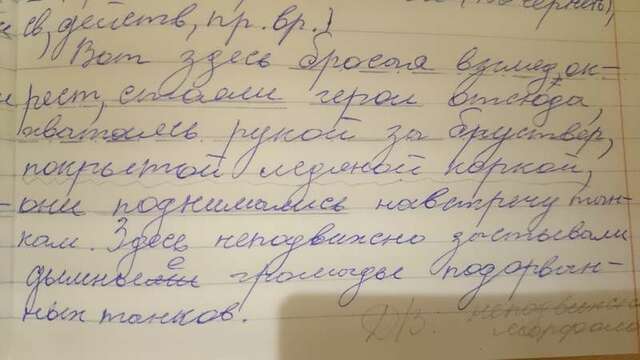 св, действ, пр. вр.)
Вот здесь бросая взгляд ок-
рест, стояли герои отсюда,
хватаясь рукой за бруствер,
покрытой ледяной коркой,
они поднимались навстречу тан-
кам. Здесь неподвижно застывали
дымные громады подорван-
ных танков.
Д/З.